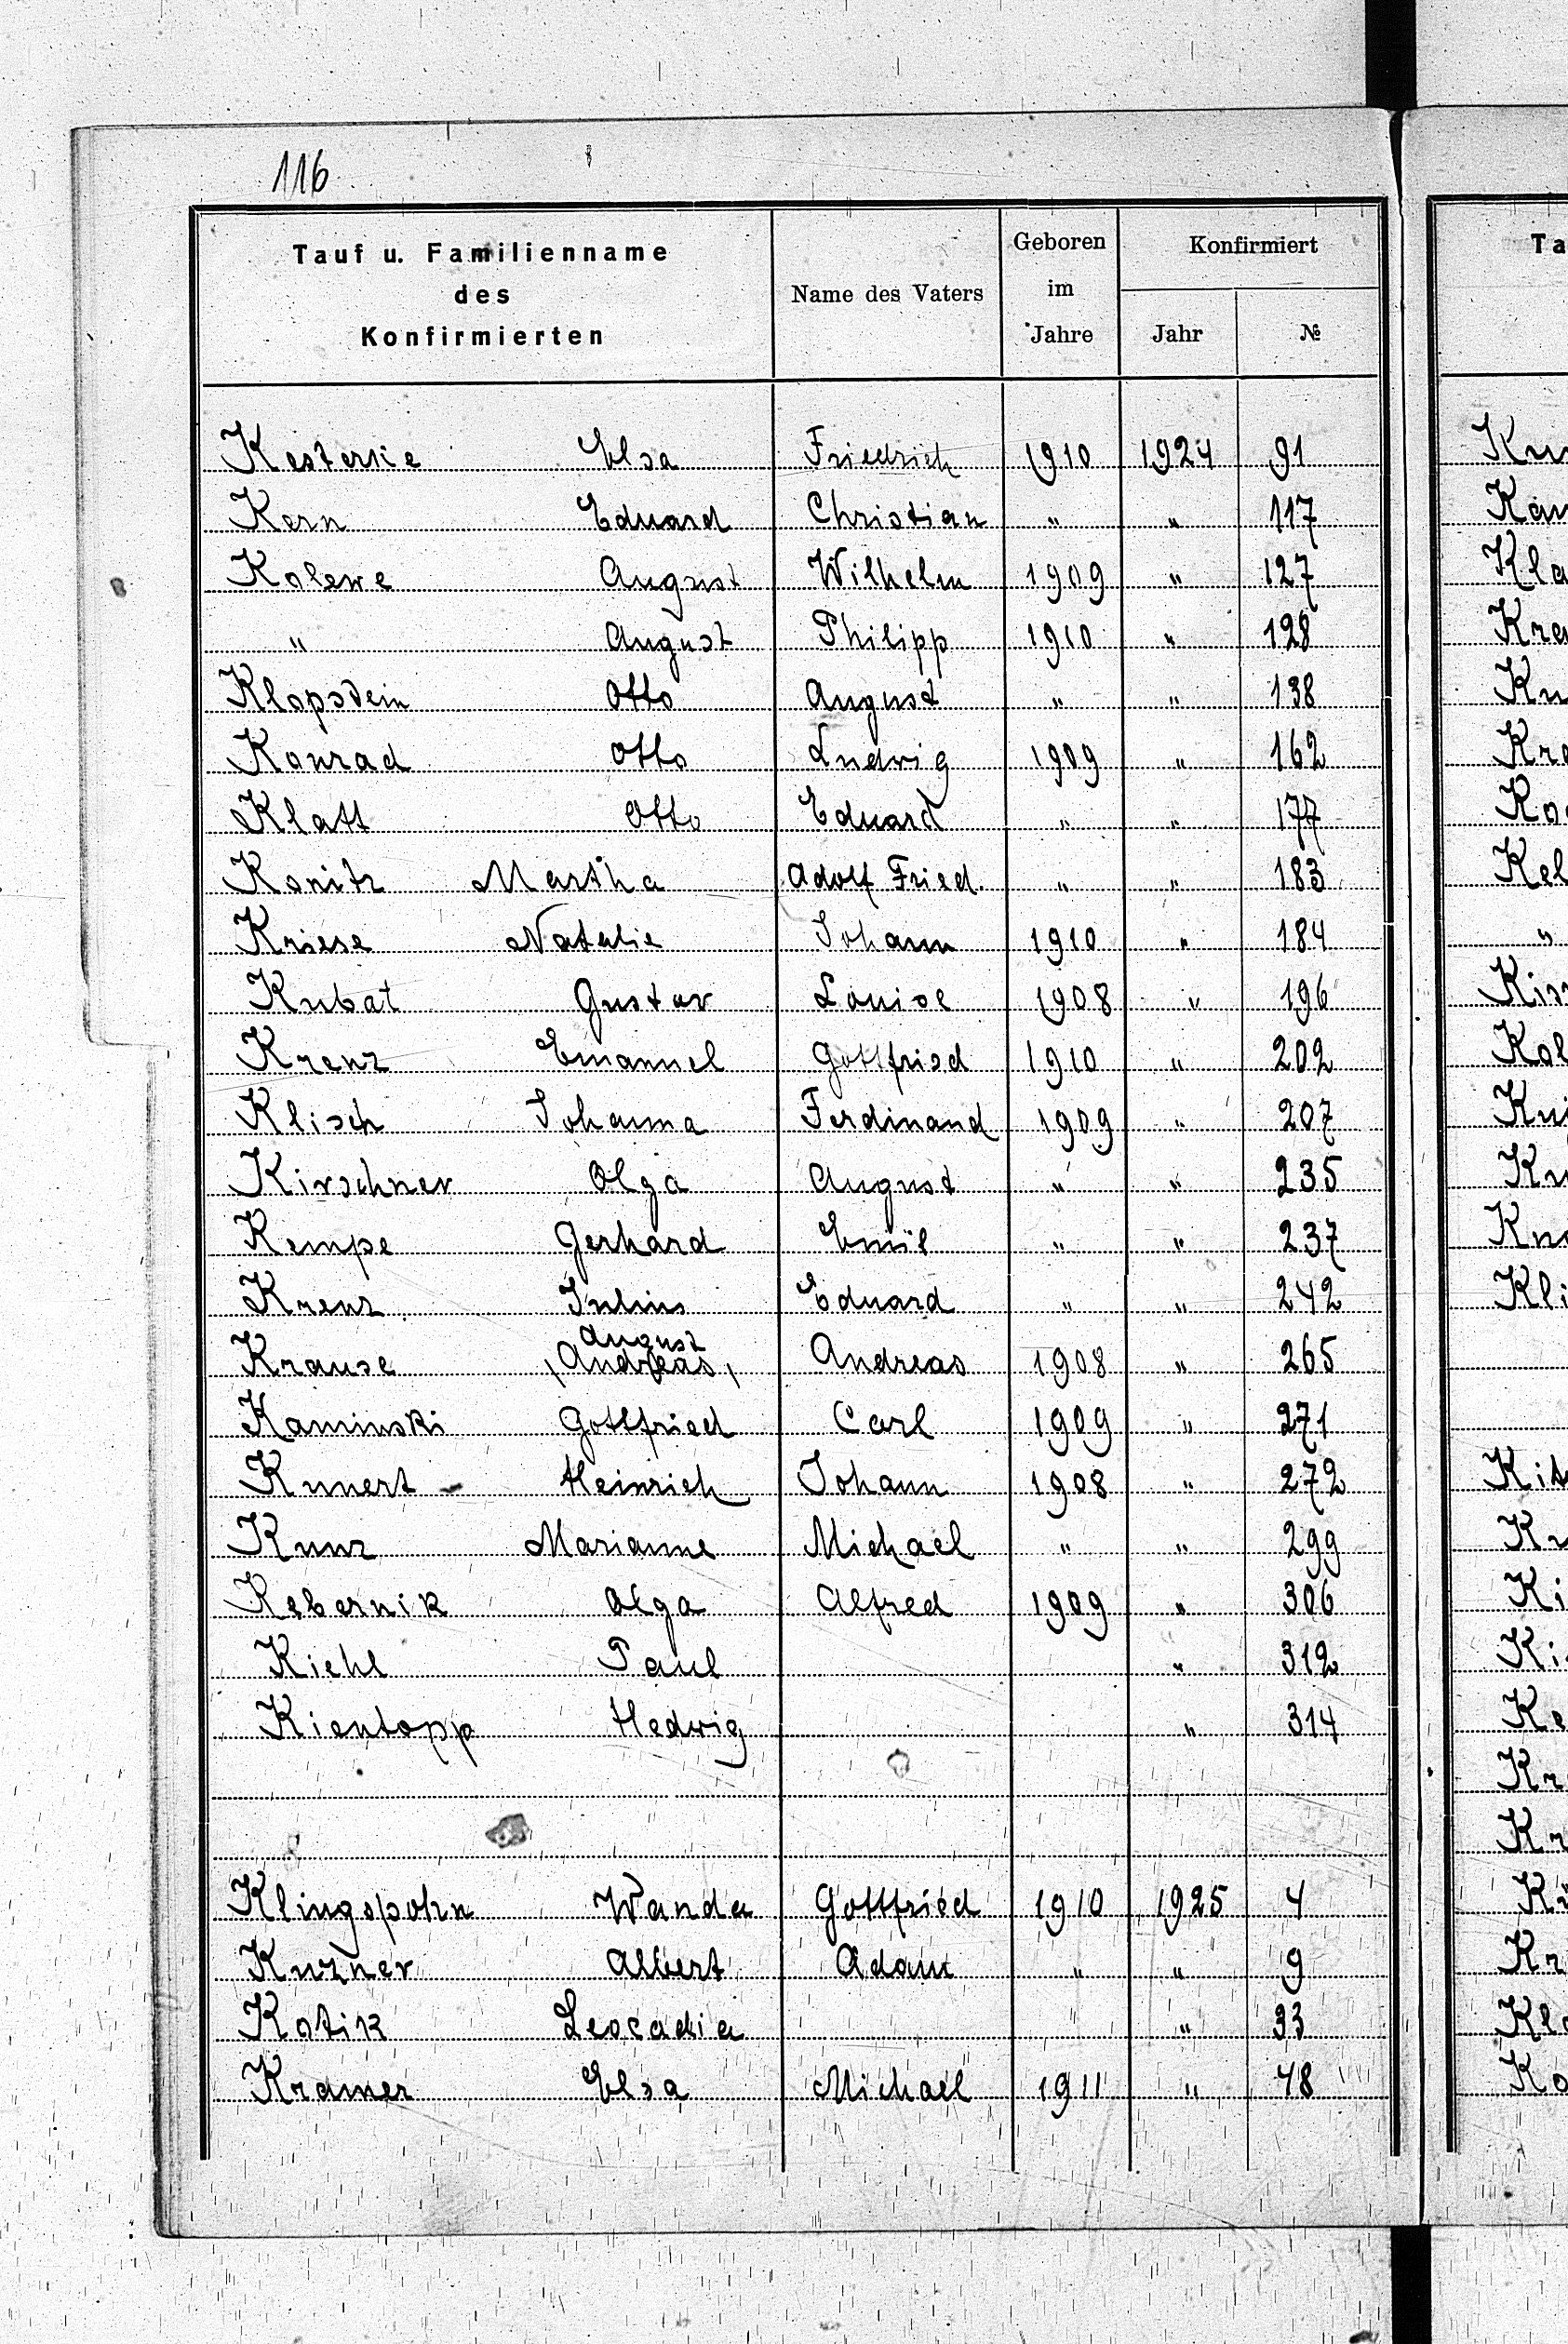 116
Tauf u. Familienname des Konfirmierten | Name des Vaters | Geboren im Jahre | Konfirmiert Jahr | №
Kesterke Elsa Friedrich 1910 1924 91
Korn Eduard Christian " " 117
Kolewe August Wilhelm 1909 " 127
" August Philipp 1910 " 128
Klopstein Otto August " " 138
Konrad Otto Ludwig 1909 " 162
Klatt Otto Eduard " " 177
Konitz Martha Adolf Fried. " " 183
Kriese Natalie Johann 1910 " 184
Kubat Gustav Louise 1908 " 196
Krenz Emanuel Gottfried 1910 " 202
Klisch Johanna Ferdinand 1909 " 207
Kirschner Olga August " " 235
Kempe Gerhard Emil " " 237
Krenz Julius Eduard " " 242
August
Krause Andreas Andreas 1908 " 265
Kaminski Gottfried Carl 1909 " 271
Kunert - Heinrich Johann 1908 " 272
Kunz Marianne Michael " " 299
Kebernik Olga Alfred 1909 " 306
Kiehl Paul " 312
Kientopp Hedwig " 314
Klingspohn Wanda Gottfried 1910 1925 4
Kuzner Albert Adam " " 9
Kotik Leocadia " " 33
Kramer Elsa Michael 1911 " 48